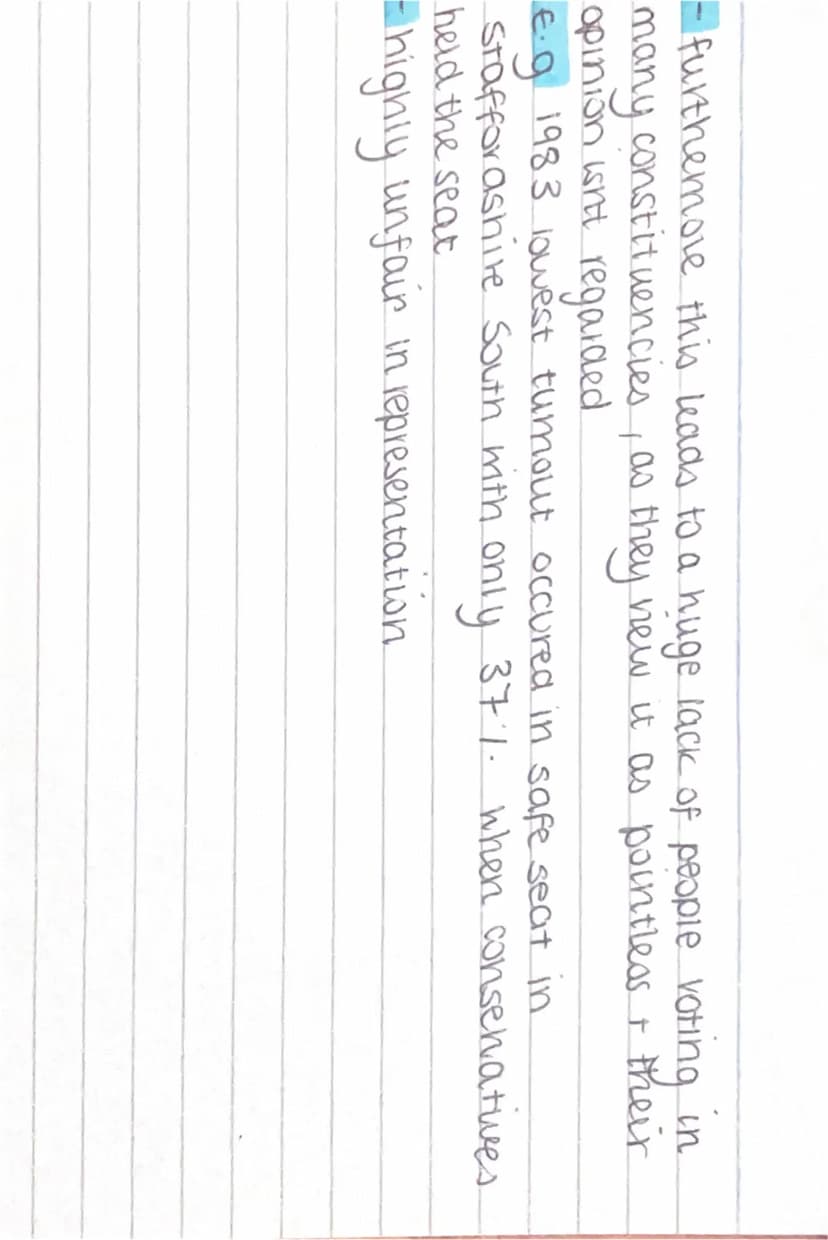 - furthemore this leads to a huge lack of people voting in
many constituencies, as they view it as pointless + their
opinion isnt regarded
E.g 1983 lowest turnout occured in safe seat in
Staffordshire South with only 37%. when conservatives
held the seat
- highly unfair in representation